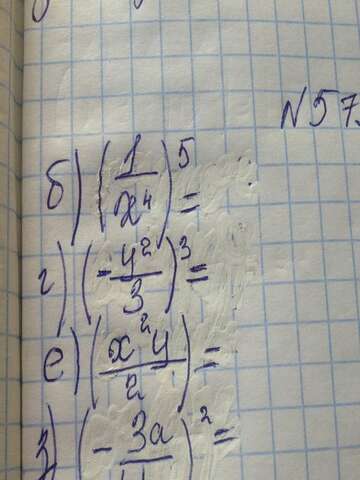 N57
б) (1/x⁴)⁵ =
г) (-y²/3)³ =
е) (x²y/2) =
з) (-3a/)² =